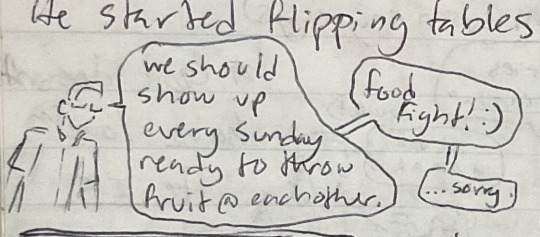 He started flipping tables
we should
show up
every Sunday
ready to throw
fruit @ eachother.
food
fight! :)
...sorry.